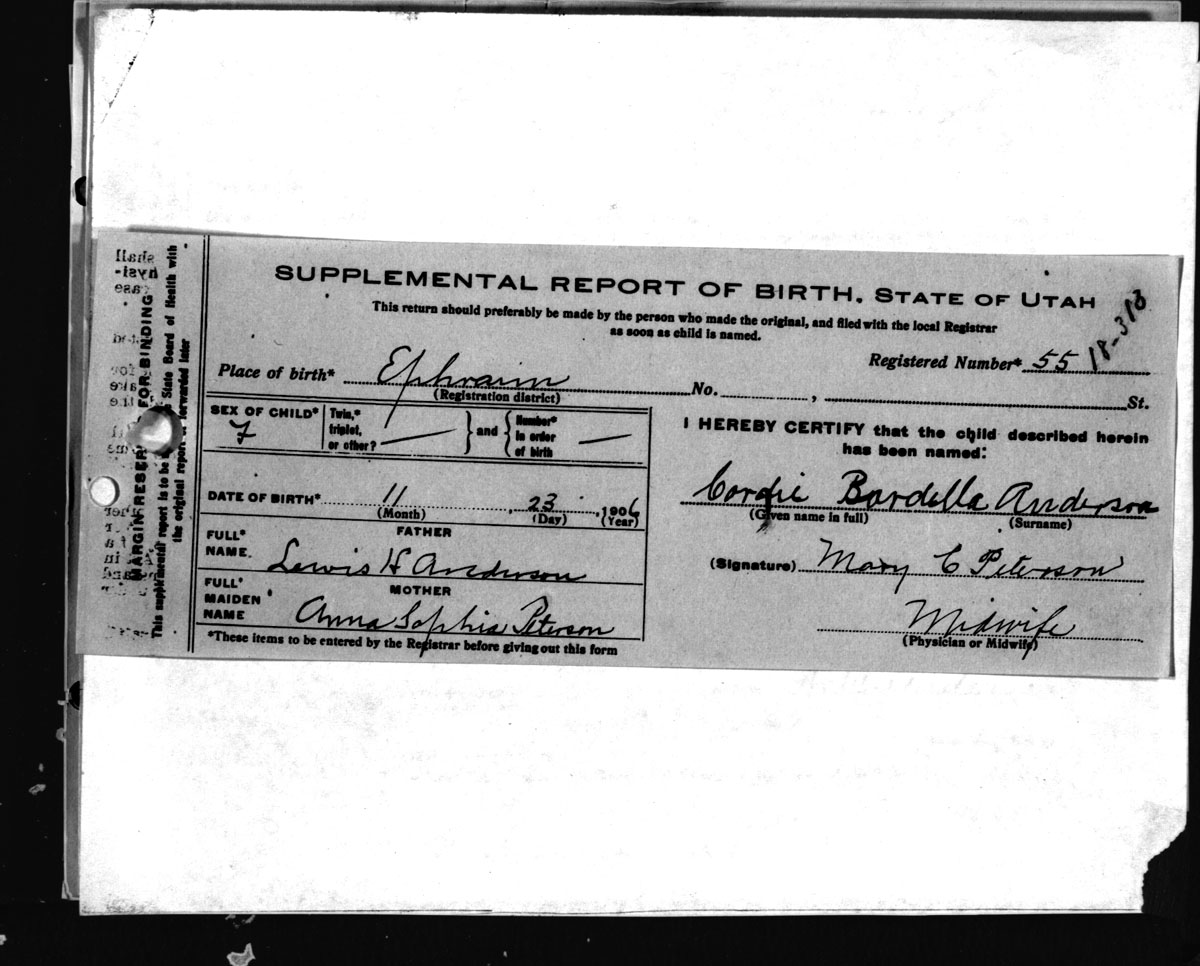 SUPPLEMENTAL REPORT OF BIRTH. STATE OF UTAH
This return should preferably be made by the person who made the original, and filed with the local Registrar
as soon as child is named.
18-318
Registered Number* 55
Place of birth* Ephraim No. , St.
(Registration district)
SEX OF CHILD* F
Twin,* triplet, or other? — } and { Number* in order of birth —
DATE OF BIRTH* 11 , 23 , 1906
(Month) (Day) (Year)
FATHER
FULL* NAME. Lewis H Anderson
MOTHER
FULL* MAIDEN NAME Anna Sophia Peterson
*These items to be entered by the Registrar before giving out this form
I HEREBY CERTIFY that the child described herein
has been named:
Cordie Bardella Anderson
(Given name in full) (Surname)
(Signature) Mary C Peterson
Midwife
(Physician or Midwife)
MARGIN RESER FOR BINDING
This supplemental report is to be State Board of Health with
the original report forwarded later